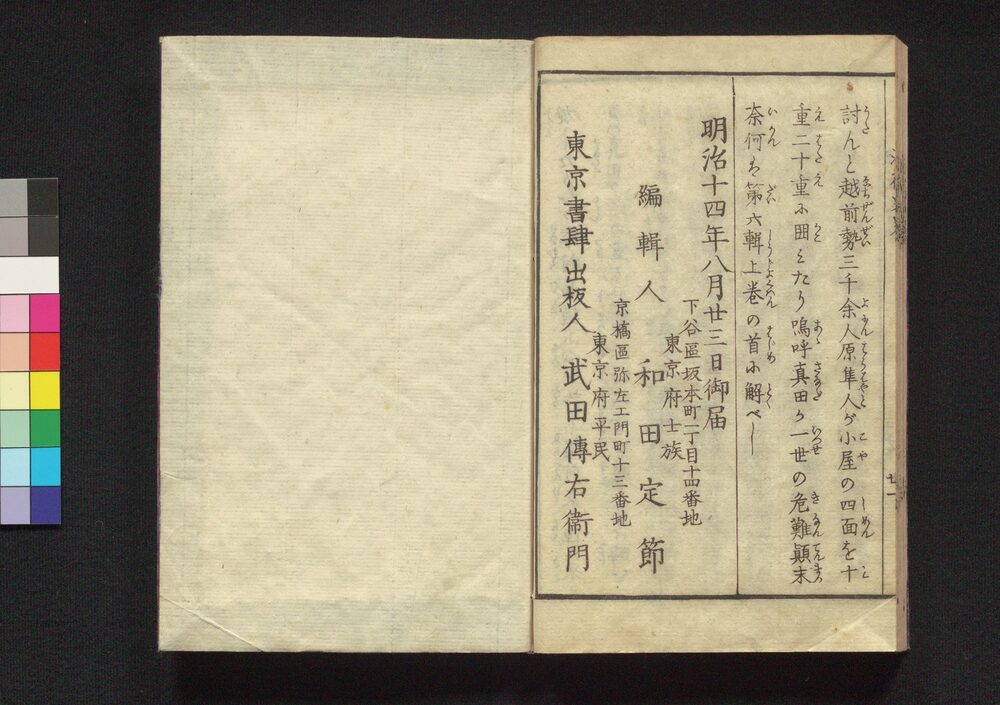 討んと越前勢三千余人原隼人が小屋の四面を十
重二十重に囲みたり嗚呼真田が一世の危難顛末
奈何は第六輯上巻の首に解べし
明治十四年八月廿三日御届
下谷區坂本町一丁目十四番地
東京府士族
編輯人 和田定節
京橋區弥左エ門町十三番地
東京府平民
東京書肆出板人 武田傳右衞門